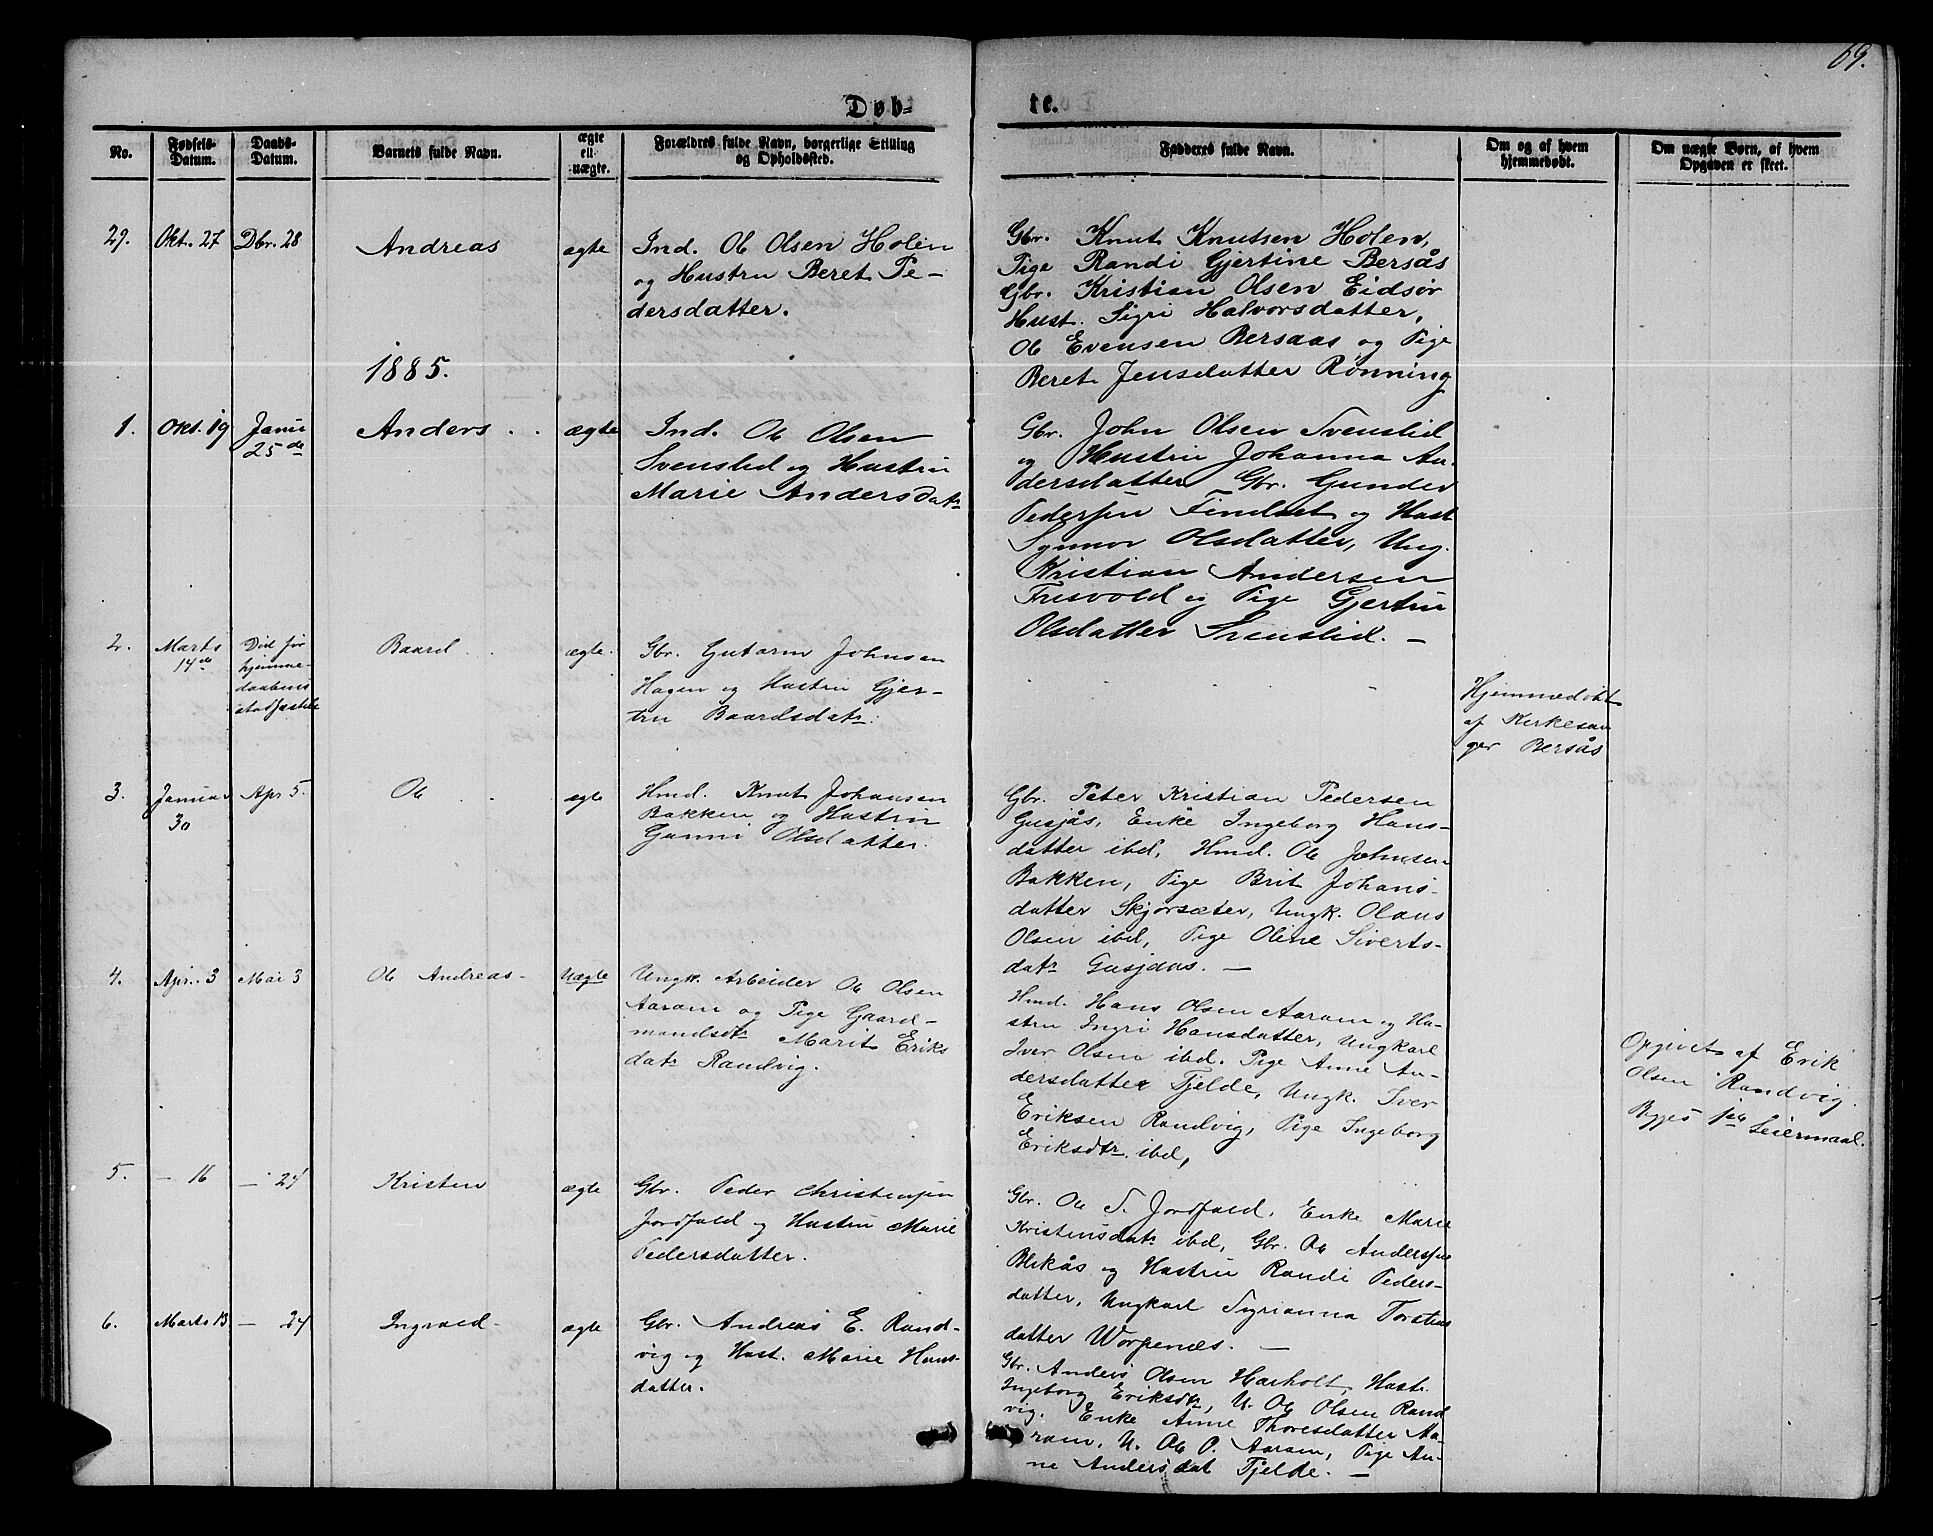 69.
Døb-
te.
No.
Fødsels-
Datum.
Daabs-
Datum.
Barnets fulde Navn.
ægte
ell.
uægte.
Forældres fulde Navn, borgerlige Stilling
og Opholdssted.
Fadderes fulde Navn.
Om og af hvem
hjemmedøbt.
Om uægte Børn, af hvem
Opgaven er skeet.
29.
Okt. 27
Dbr. 28
Andreas
ægte
Ind. Ole Olsen Holen
og Hustru Beret Pe-
dersdatter.
Gbr. Knut Knutsen Holen,
Pige Randi Gjertine Bersås
Gbr. Kristian Olsen Eidsør
Hust. Sigri Halvorsdatter,
Ole Evensen Bersaas og Pige
Beret Jensdatter Rønning
1885.
1.
Okt. 19
Janu
25de
Anders
ægte
Ind. Ole Olsen
Svenslid og Hustru
Marie Andersdatr
Gbr. John Olsen Svenslid
og Hustru Johanna An-
dersdatter Gbr. Gunder
Pedersen Findset og Hust
Synnov Olsdatter, Ung.
Kristian Andersen
Frisvold og Pige Gjertru
Olsdatter Svenslid. —
2.
Marts
14de
Død før
hjemme-
daabens
stadfæstelse
Baard
ægte.
Gbr. Gutorm Johnsen
Hagen og Hustru Gjer-
tru Baardsdatr.
Hjemmedøbt
af Kirkesan
ger Bersås
3.
Januar
30
Apr 5.
Ole
ægte
Hmd. Knut Johansen
Bakken og Hustru
Gunni Olsdatter.
Gbr. Peter Kristian Pedersen
Gusjås, Enke Ingeborg Hans-
datter ibd, Hmd. Ole Johnsen
Bakken, Pige Brit Johans-
datter Skjørsæter, Ungk. Olaus
Olsen ibd, Pige Oline Siverts-
datr Gusjaas. —
4.
Apr. 3
Mai 3
Ole Andreas
Uægte
Ungk. Arbeider Ole Olsen
Aaram og Pige Gaard-
mandsdtr Marit Eriks
datr Randvig.
Hmd. Hans Olsen Aaram og Hu-
stru Ingri Hansdatter, Ungkarl
Iver Olsen ibd. Pige Anne An-
dersdatter Tjelde, Ungk. Iver
Eriksen Randvig, Pige Ingeborg
Eriksdtr. ibd,
Opgivet af Erik
Olsen Randvig.
Begges 1ste Leiermaal.
5.
— 16
— 24
Kristen
ægte
Gbr. Peder Christensen
Jordfald og Hustru Marie
Pedersdatter.
Gbr. Ole S. Jordfald, Enke Marie
Kristensdatr ibd, Gbr. Ole Andersen
Blikås og Hustru Randi Peders-
datter, Ungkarl Syrianna Torstens
datter Worpenæs. —
6.
Marts 13
— 24
Ingvald
ægte
Gbr. Andreas E. Rand-
vig og Hust. Marie Hans-
datter.
Gbr. Anders Olsen Harholt, Hust.
Ingeborg Eriksdtr, U. Ole Olsen Rand
vig. Enke Anne Thoresdatter Aa-
ram, U. Ole O. Aaram, Pige An-
ne Andersdat Tjelde. —